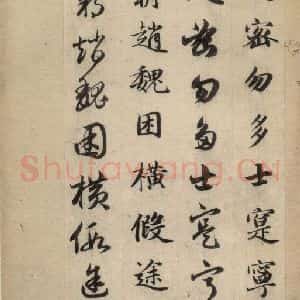 密勿多士寔寧
密勿多士寔寧
趙魏困橫假途
趙魏困橫假途
Shufawang.CN